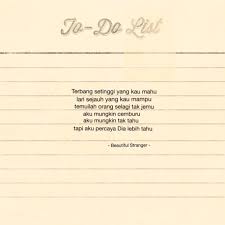 To-Do List
Terbang setinggi yang kau mahu
lari sejauh yang kau mampu
temuilah orang selagi tak jemu
aku mungkin cemburu
aku mungkin tak tahu
tapi aku percaya Dia lebih tahu
- Beautiful Stranger -